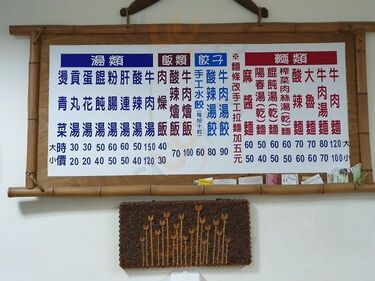 湯類
燙青菜 時價
貢丸湯
蛋花湯
餛飩湯
粉腸湯
肝連湯
酸辣湯
牛肉湯
大
小
飯類
肉燥飯 40 30
酸辣燴飯 70
牛肉燴飯 100
餃子
手工水餃 60
酸辣湯餃 80
牛肉湯餃 90
※麵條改手工拉麵加五元
麵類
麻醬麵 60 50
陽春湯(乾)麵 50 40
餛飩湯(乾)麵 60 50
榨菜肉絲湯(乾)麵 70 60
酸辣麵 70 60
大魯麵 70 60
牛肉湯麵 80 70
牛肉麵 120 100
大
小